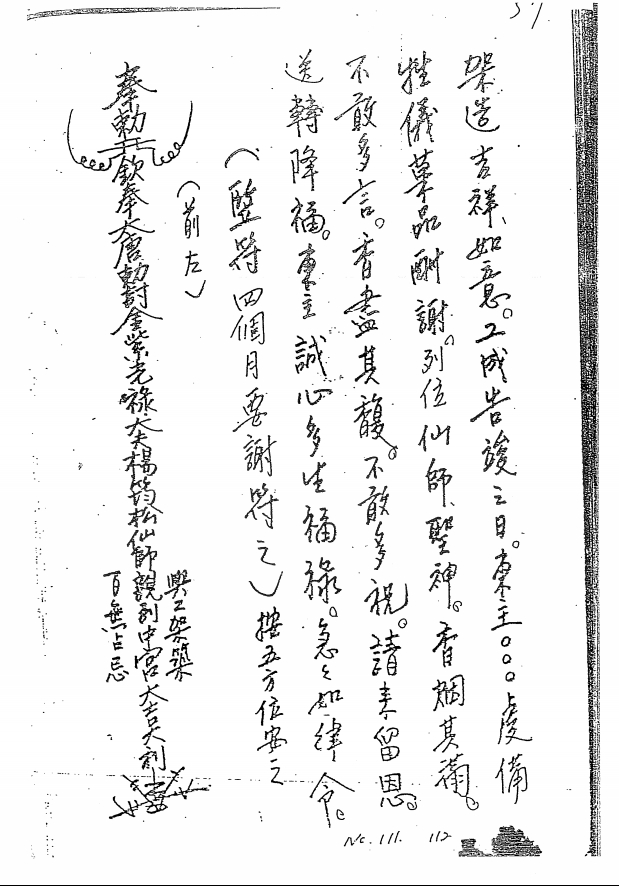 51
架造吉祥、如意。工成告竣之日。東主〇〇〇虔備
牲儀菓品酬謝。列位仙師、聖神。香烟其滿。
不敢多言。香盡其馥。不敢多祝。請來留恩。
送轉降福。東主誠心多生福祿。急々如律令。
(竪符四個月要謝符之) 按五方位安之
(前左)
奉勅 欽奉大唐勅封金紫光祿大夫楊筠松仙師親到中宮大吉大利
興工架築
百無占忌
No. 111. 112